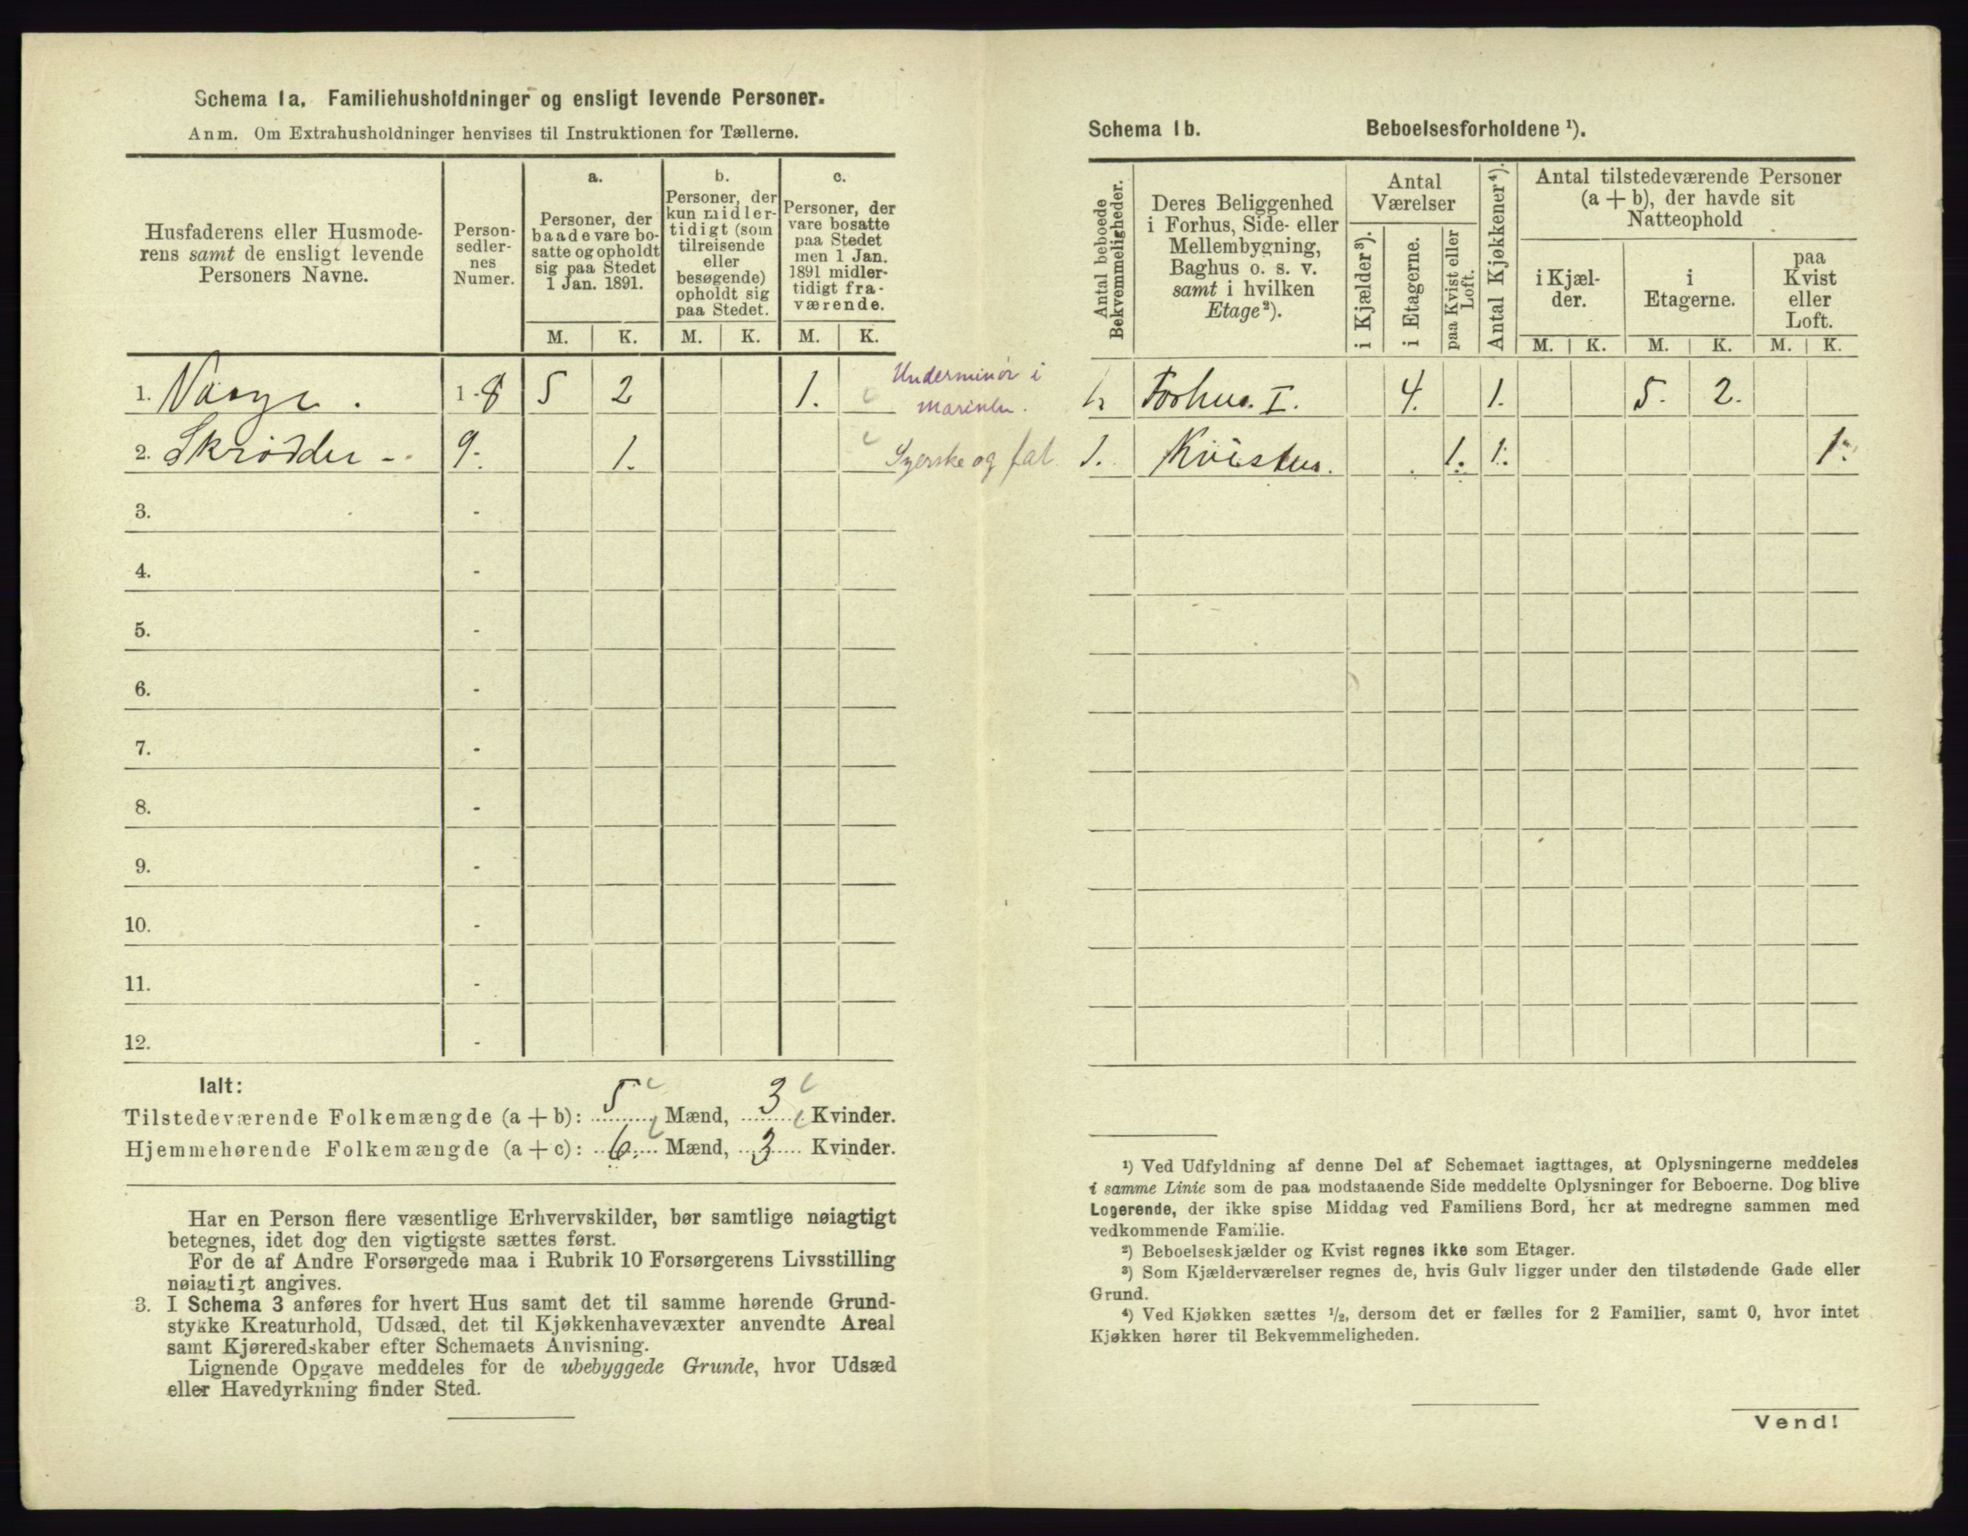 Schema 1a. Familiehusholdninger og ensligt levende Personer.
Anm. Om Extrahusholdninger henvises til Instruktionen for Tællerne.
Husfaderens eller Husmode-
rens samt de ensligt levende
Personers Navne.
Person-
sedler-
nes
Numer.
a.
Personer, der
baade vare bo-
satte og opholdt
sig paa Stedet
1 Jan. 1891.
b.
Personer, der
kun midler-
tidigt (som
tilreisende
eller
besøgende)
opholdt sig
paa Stedet.
c.
Personer, der
vare bosatte
paa Stedet
men 1 Jan.
1891 midler-
tidigt fra-
værende.
M. K. M. K. M. K.
1. 1 - 8 5 2 1. Underminør i
marinen.
2. Skrødder - 9. 1. Syerske og fat
3. -
4. -
5. -
6. -
7. -
8. -
9. -
10. -
11. -
12. -
Ialt:
Tilstedeværende Folkemængde (a + b): 5 Mænd, 3 Kvinder.
Hjemmehørende Folkemængde (a + c): 6. Mænd, 3 Kvinder.
Har en Person flere væsentlige Erhvervskilder, bør samtlige nøiagtigt
betegnes, idet dog den vigtigste sættes først.
For de af Andre Forsørgede maa i Rubrik 10 Forsørgerens Livsstilling
nøiagtigt angives.
3. I Schema 3 anføres for hvert Hus samt det til samme hørende Grund-
stykke Kreaturhold, Udsæd, det til Kjøkkenhavevæxter anvendte Areal
samt Kjøreredskaber efter Schemaets Anvisning.
Lignende Opgave meddeles for de ubebyggede Grunde, hvor Udsæd
eller Havedyrkning finder Sted.
Schema 1b. Beboelsesforholdene ¹).
Antal beboede
Bekvemmeligheder.
Deres Beliggenhed
i Forhus, Side- eller
Mellembygning,
Baghus o. s. v.
samt i hvilken
Etage²).
Antal
Værelser
i Kjælder³).
i Etagerne.
paa Kvist eller
Loft.
Antal Kjøkkener⁴).
Antal tilstedeværende Personer
(a + b), der havde sit
Natteophold
i Kjæl-
der.
i
Etagerne.
paa
Kvist
eller
Loft.
M. K. M. K. M. K.
1. Forhus. I. 4. 1. 5. 2.
1. Kvisthus. 1. 1. 1.
¹) Ved Udfyldning af denne Del af Schemaet iagttages, at Oplysningerne meddeles
i samme Linie som de paa modstaaende Side meddelte Oplysninger for Beboerne. Dog blive
Logerende, der ikke spise Middag ved Familiens Bord, her at medregne sammen med
vedkommende Familie.
²) Beboelseskjælder og Kvist regnes ikke som Etager.
³) Som Kjælderværelser regnes de, hvis Gulv ligger under den tilstødende Gade eller
Grund.
⁴) Ved Kjøkken sættes ½, dersom det er fælles for 2 Familier, samt 0, hvor intet
Kjøkken hører til Bekvemmeligheden.
Vend!